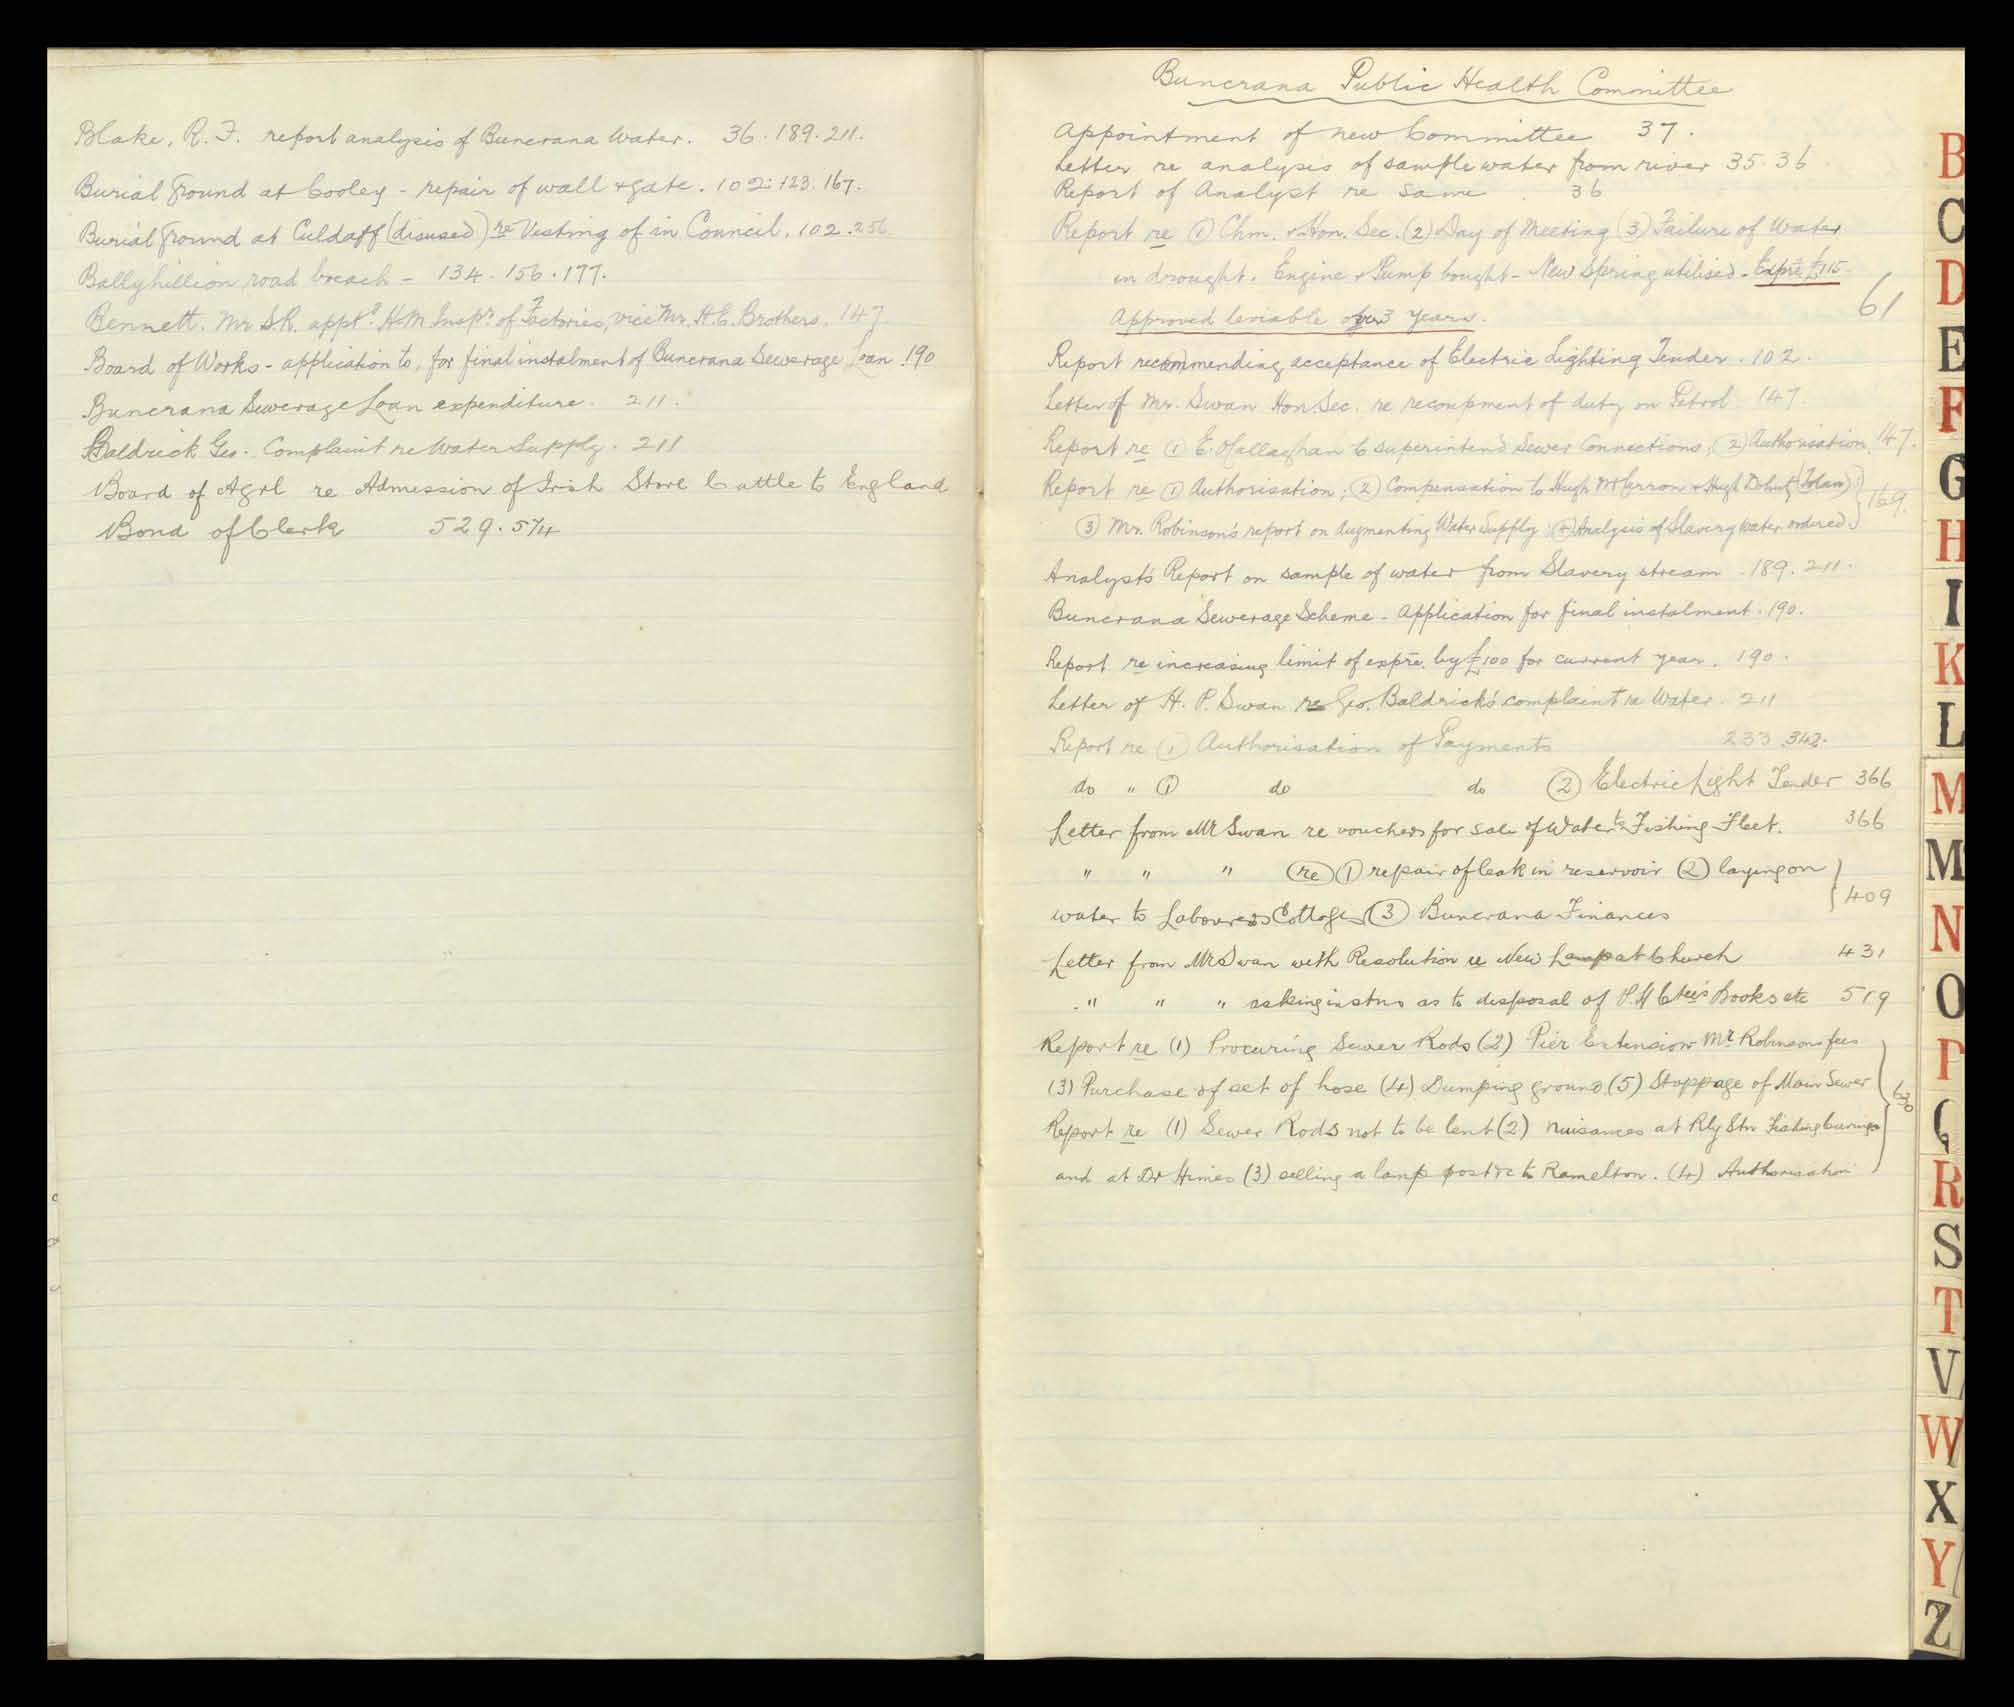 Blake, R. F. report analysis of Buncrana Water. 36. 189. 211.
Burial Ground at Cooley - repair of wall & gate. 102. 123. 167.
Burial Ground at Culdaff (disused) re Vesting of in Council. 102. 256
Ballyhillion road breach - 134. 156. 177.
Bennett. Mr S.R. apptd. H.M. Inspr. of Factories, vice Mr. H.E. Brothers. 147
Board of Works - application to, for final instalment of Buncrana Sewerage Loan. 190
Buncrana Sewerage Loan expenditure. 211.
Baldrick Geo. Complaint re Water Supply. 211
Board of Agrl re Admission of Irish Store Cattle to England
Bond of Clerk 529. 574
Buncrana Public Health Committee
Appointment of new Committee 37.
Letter re analysis of sample water from river 35. 36.
Report of Analyst re same 36
Report re (1) Chm. & Hon. Sec. (2) Day of Meeting (3) Failure of Water
in drought. Engine & Pump bought - New Spring utilised. Expre £115.
Approved leviable over 3 years. 61
Report recommending acceptance of Electric Lighting Tender. 102.
Letter of Mr. Swan Hon Sec. re recoupment of duty on Petrol 147.
Report re (1) E. O'Callaghan to superintend Sewer Connections, (2) Authorisation 147.
Report re (1) Authorisation, (2) Compensation to Hugh McCarron & Hugh Doherty (Tolan)
(3) Mr. Robinson's report on Augmenting Water Supply (4) Analysis of Slavery water ordered 169.
Analyst's Report on sample of water from Slavery stream. 189. 211.
Buncrana Sewerage Scheme - Application for final instalment. 190.
Report re increasing limit of expre. by £100 for current year. 190.
Letter of H. P. Swan re Geo. Baldrick's complaint re Water. 211
Report re (1) Authorisation of Payments 233 342.
do " (1) do do (2) Electric Light Tender 366
Letter from Mr Swan re vouchers for sale of Water to Fishing Fleet. 366
" " " (re) (1) repair of leak in reservoir (2) laying on
water to Labourers Cottages (3) Buncrana Finances 409
Letter from Mr Swan with Resolution re New Lamp at Church 431
" " " asking instns as to disposal of P.H Ctee's Books etc 519
Report re (1) Procuring Sewer Rods (2) Pier Extension Mr Robinsons fees
(3) Purchase of set of hose (4) Dumping ground (5) Stoppage of Main Sewer
630
Report re (1) Sewer Rods not to be lent (2) nuisances at Rly Stn Fishing
and at Dr Himes (3) selling a lamp post &c to Ramelton. (4) Authorisation
B
C
D
E
F
G
H
I
K
L
M
M
N
O
P
Q
R
S
T
V
W
X
Y
Z